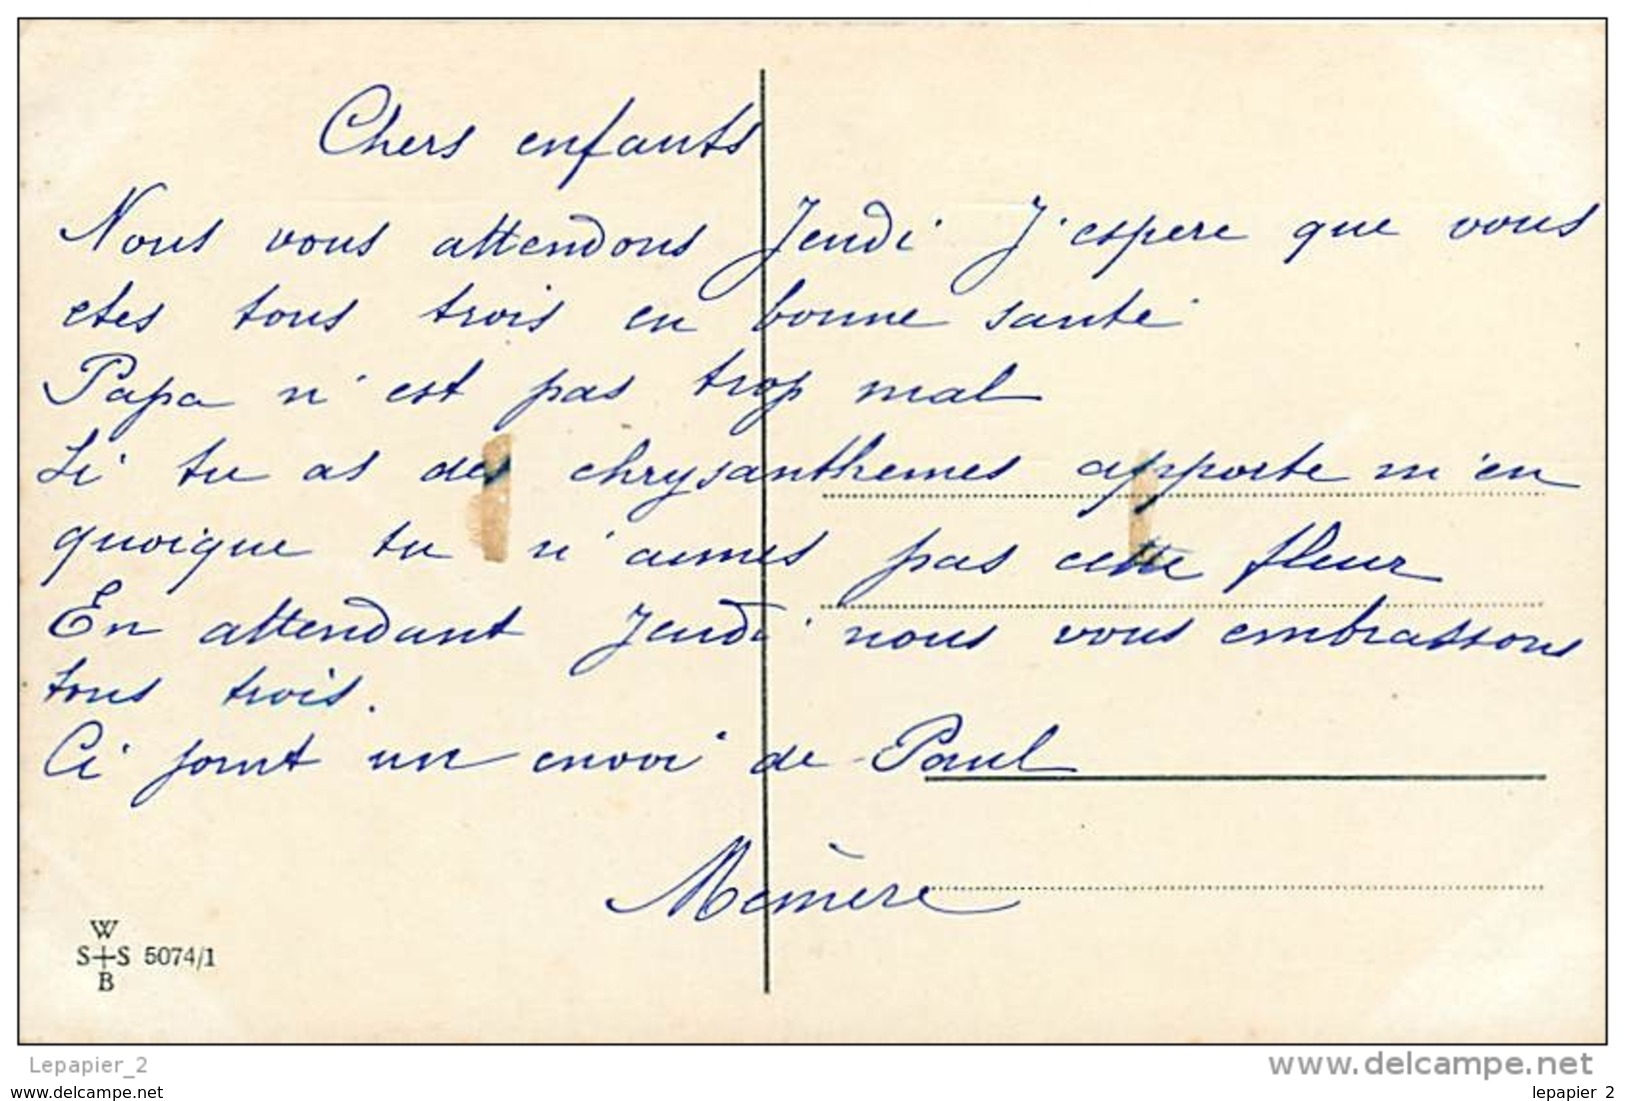 Chers enfants
Nous vous attendons Jeudi J'espere que vous
etes tous trois en bonne santé
Papa n'est pas trop mal
Si tu as des chrysanthemes apporte m'en
quoique tu n'aimes pas cette fleur
En attendant Jeudi nous vous embrassons
tous trois.
Ci joint un envoi de Paul
Mémère
W
S+S 5074/1
B
Lepapier_2
www.delcampe.net
lepapier_2
lepapier 2